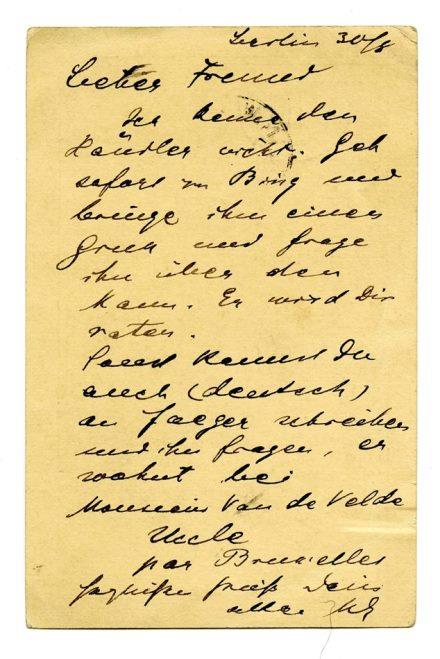 Berlin 30/8
Lieber Freund
Ich kenne den
Händler nicht. Geh
sofort zu Bing und
bringe ihm einen
Gruss und frage
ihn über den
Mann. Er wird Dir
raten.
Sonst kannst Du
auch (deutsch)
an Jaeger schreiben
und ihn fragen, er
wohnt bei
Monsieur Van de Velde
Uccle
par Bruxelles
Grüße Dein